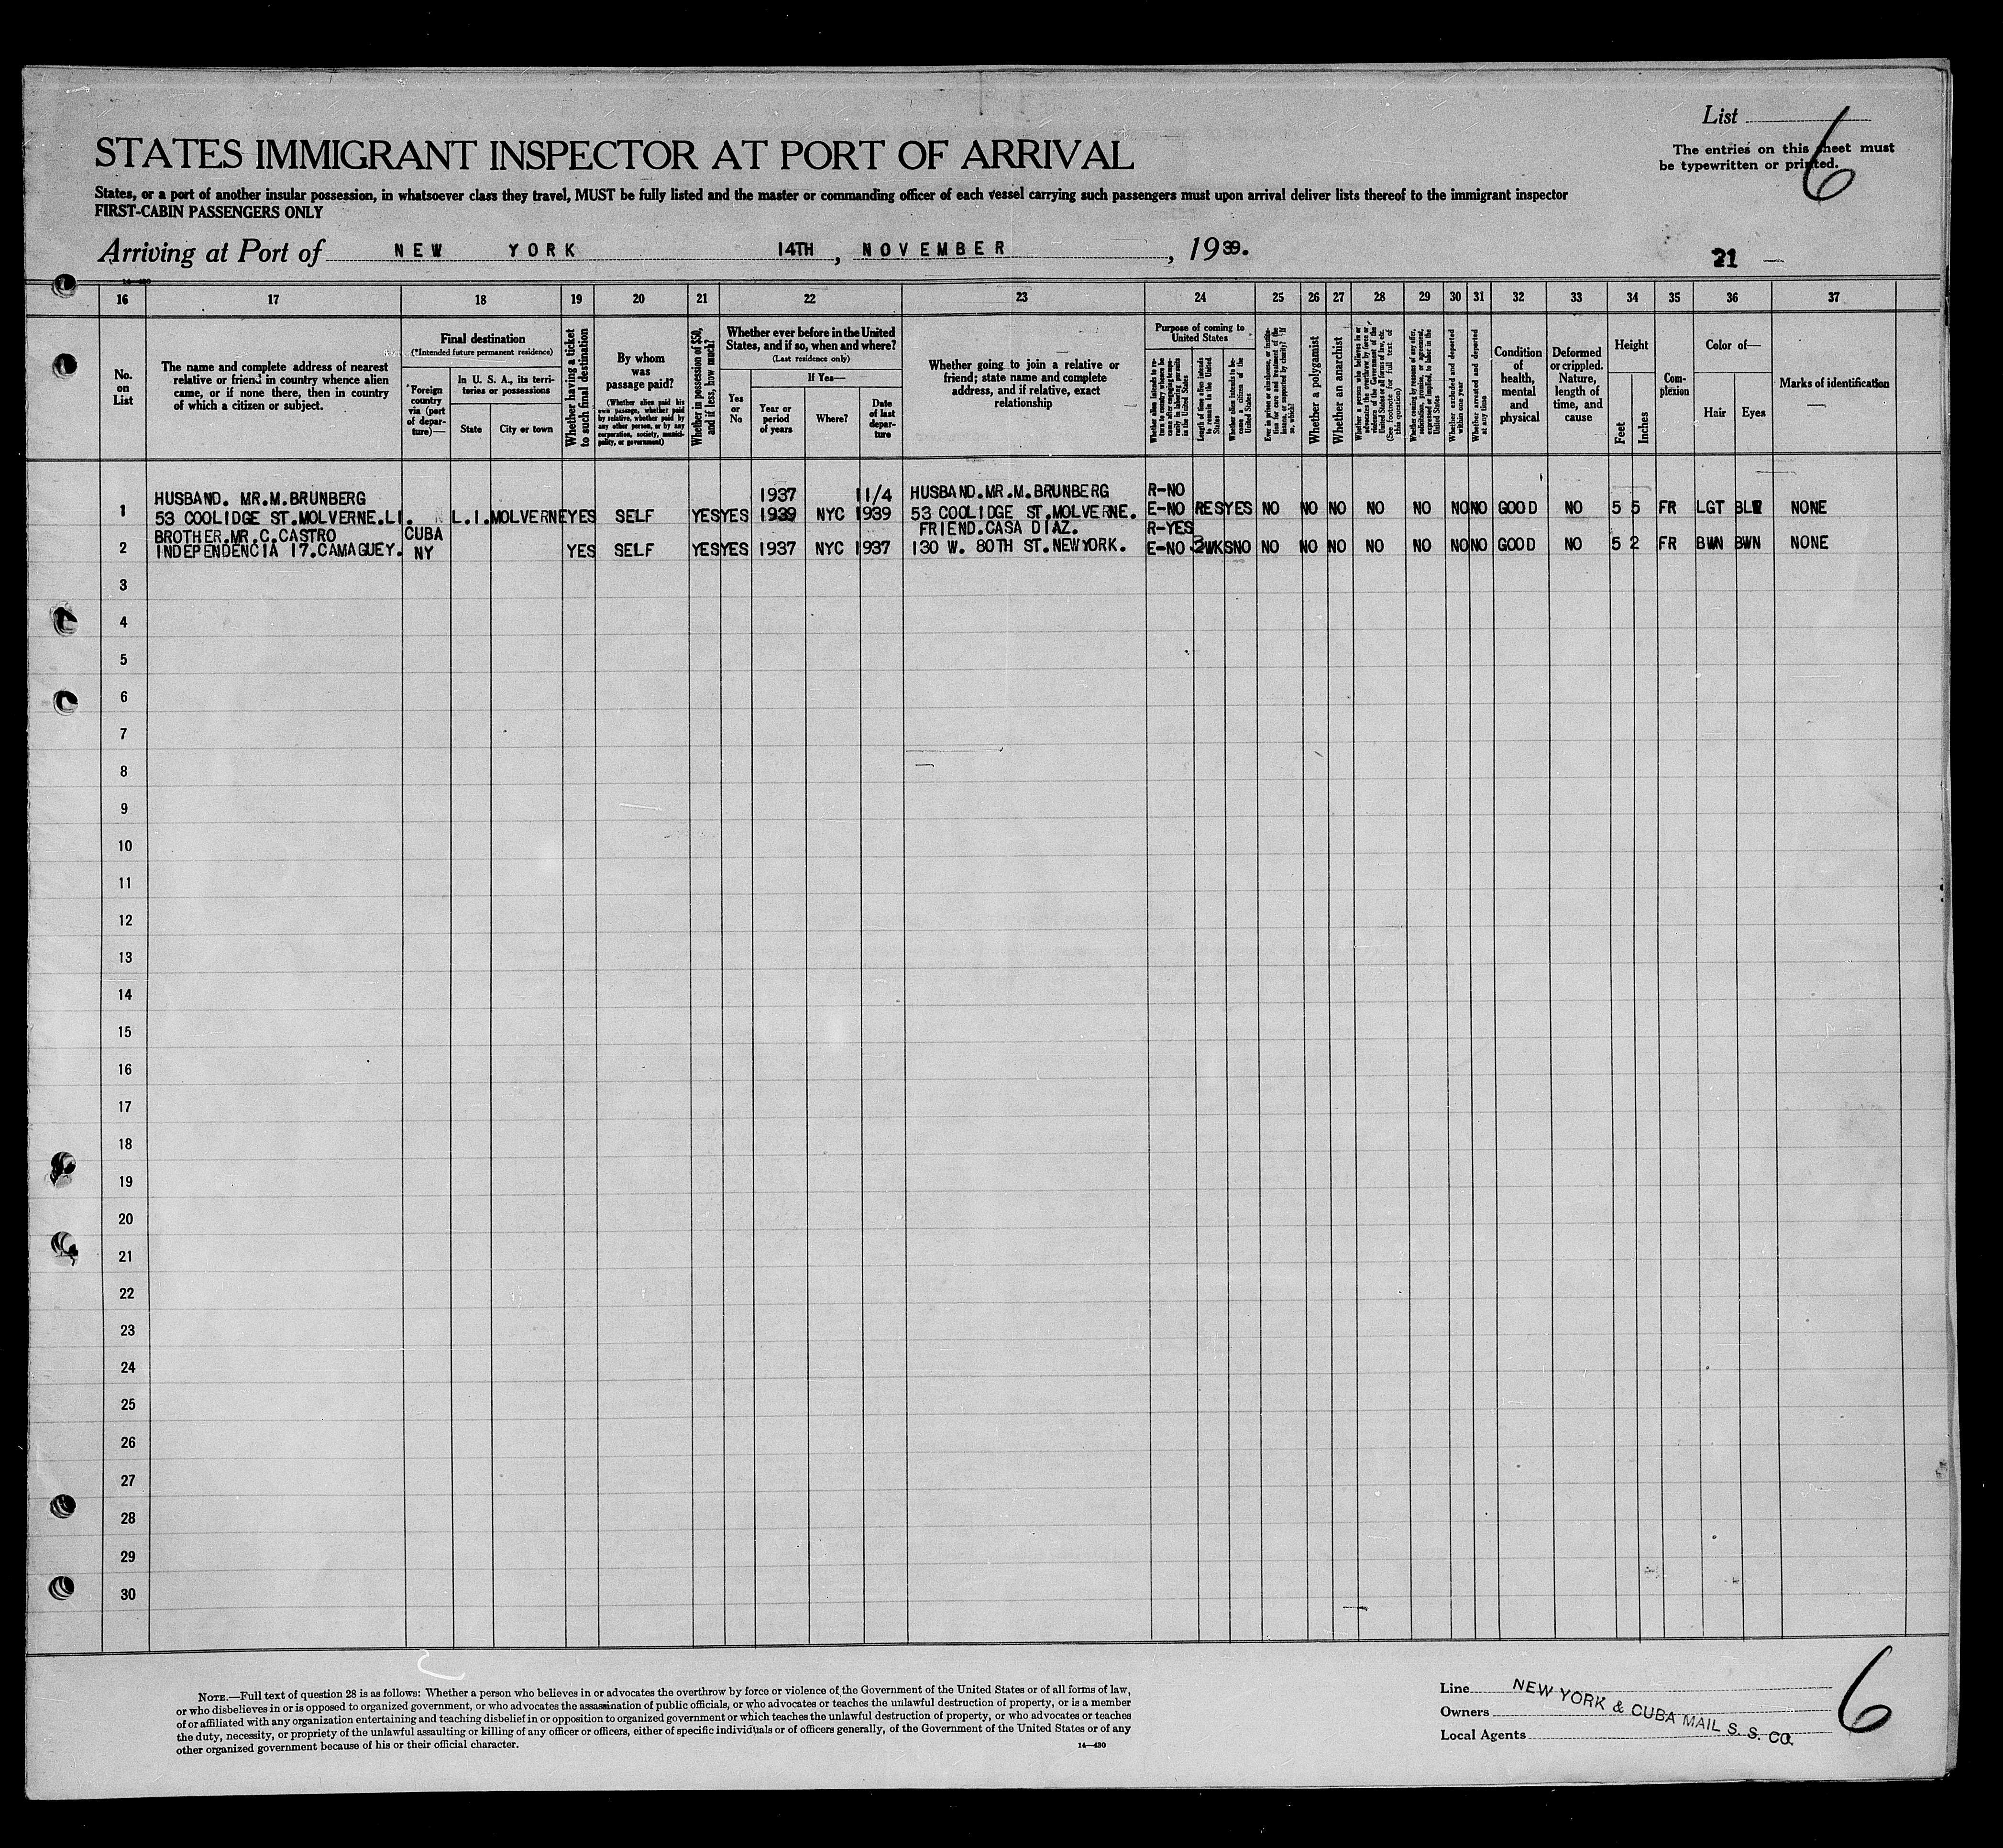 List
6
The entries on this sheet must
be typewritten or printed.
STATES IMMIGRANT INSPECTOR AT PORT OF ARRIVAL
States, or a port of another insular possession, in whatsoever class they travel, MUST be fully listed and the master or commanding officer of each vessel carrying such passengers must upon arrival deliver lists thereof to the immigrant inspector
FIRST-CABIN PASSENGERS ONLY
Arriving at Port of NEW YORK 14TH, NOVEMBER, 1939.
21 —
14—430
16 17 18 19 20 21 22 23 24 25 26 27 28 29 30 31 32 33 34 35 36 37
No.
on
List
The name and complete address of nearest
relative or friend in country whence alien
came, or if none there, then in country
of which a citizen or subject.
Final destination
(*Intended future permanent residence)
*Foreign
country
via (port
of depar-
ture)—
In U. S. A., its terri-
tories or possessions
State
City or town
Whether having a ticket
to such final destination
By whom
was
passage paid?
(Whether alien paid his
own passage, whether paid
by relative, whether paid by
any other person, or by any
corporation, society, munici-
pality, or government)
Whether in possession of $50,
and if less, how much?
Whether ever before in the United
States, and if so, when and where?
(Last residence only)
Yes
or
No
If Yes—
Year or
period
of years
Where?
Date
of last
depar-
ture
Whether going to join a relative or
friend; state name and complete
address, and if relative, exact
relationship
Purpose of coming to
United States
Whether alien intends to re-
turn to country whence he
came after engaging tempo-
rarily in laboring pursuits
in the United States
Length of time alien intends
to remain in the United
States
Whether alien intends to be-
come a citizen of the
United States
Ever in prison or almshouse, or institu-
tion for care and treatment of the
insane, or supported by charity? If
so, which?
Whether a polygamist
Whether an anarchist
Whether a person who believes in or
advocates the overthrow by force or
violence of the Government of the
United States or all forms of law, etc.
(See footnote for full text of
this question)
Whether coming by reasons of any offer,
solicitation, promise, or agreement,
expressed or implied, to labor in the
United States
Whether excluded and deported
within one year
Whether arrested and deported
at any time
Condition
of
health,
mental
and
physical
Deformed
or crippled.
Nature,
length of
time, and
cause
Height
Feet
Inches
Com-
plexion
Color of—
Hair
Eyes
Marks of identification
HUSBAND. MR.M.BRUNBERG 1937 11/4 HUSBAND.MR.M.BRUNBERG R-NO
1 53 COOLIDGE ST.MOLVERNE.LI. L.I. MOLVERNE YES SELF YES YES 1939 NYC 1939 53 COOLIDGE ST.MOLVERNE. E-NO RES YES NO NO NO NO NO NO NO GOOD NO 5 5 FR LGT NONE
BROTHER.MR.C.CASTRO CUBA FRIEND.CASA DIAZ. R-YES
2 INDEPENDENCIA 17.CAMAGUEY. NY YES SELF YES YES 1937 NYC 1937 130 W. 80TH ST.NEWYORK. E-NO WKS NO NO NO NO NO NO NO NO GOOD NO 5 2 FR BWN BWN NONE
3
4
5
6
7
8
9
10
11
12
13
14
15
16
17
18
19
20
21
22
23
24
25
26
27
28
29
30
NOTE.—Full text of question 28 is as follows: Whether a person who believes in or advocates the overthrow by force or violence of the Government of the United States or of all forms of law,
or who disbelieves in or is opposed to organized government, or who advocates the assassination of public officials, or who advocates or teaches the unlawful destruction of property, or is a member
of or affiliated with any organization entertaining and teaching disbelief in or opposition to organized government or which teaches the unlawful destruction of property, or who advocates or teaches
the duty, necessity, or propriety of the unlawful assaulting or killing of any officer or officers, either of specific individuals or of officers generally, of the Government of the United States or of any
other organized government because of his or their official character.
14—430
Line
Owners
Local Agents
NEW YORK & CUBA MAIL S. S. CO.
6